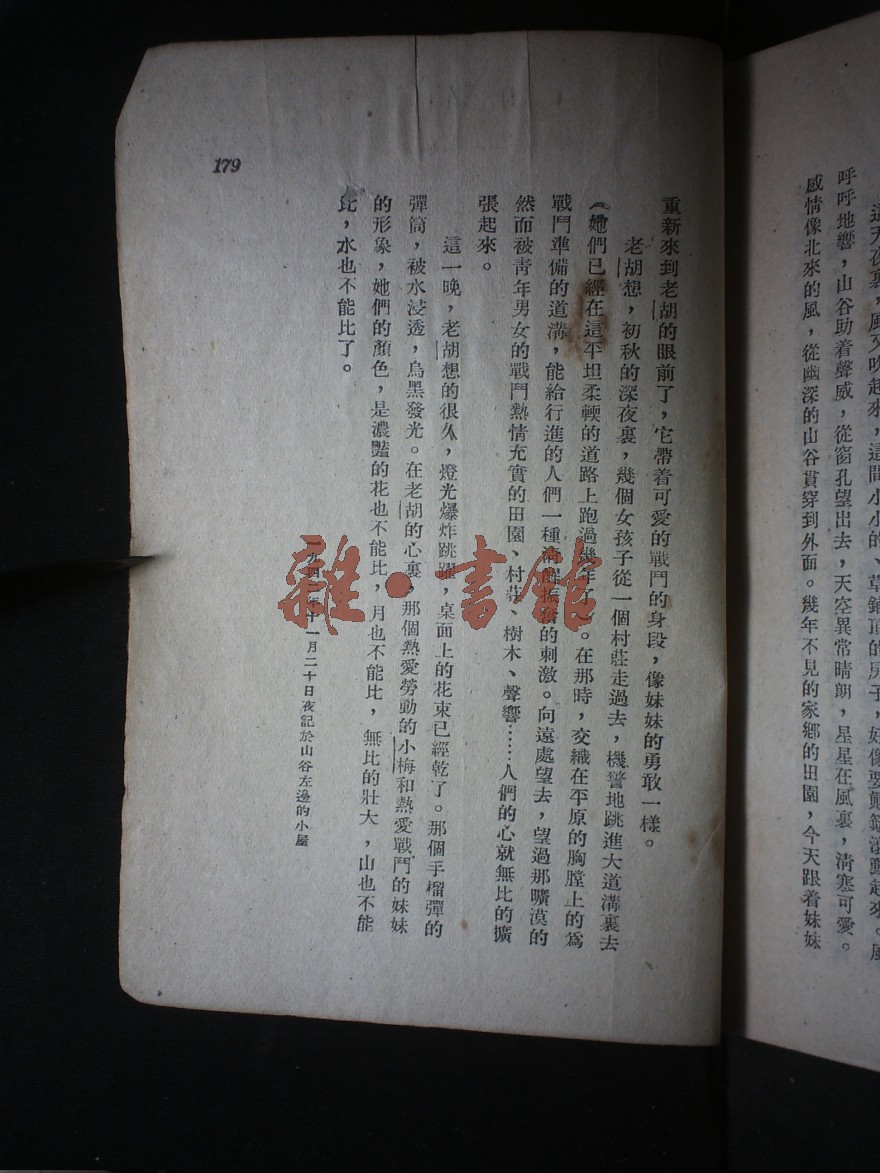 這天夜裏，風又吹起來，這間小小的、草鋪頂的房子，好像要顛簸滾動起來。風
呼呼地響，山谷助着聲威，從窗孔望出去，天空異常晴朗，星星在風裏，清寒可愛。
感情像北來的風，從幽深的山谷貫穿到外面。幾年不見的家鄉的田園，今天跟着妹妹
重新來到老胡的眼前了，它帶着可愛的戰鬥的身段，像妹妹的勇敢一樣。
老胡想，初秋的深夜裏，幾個女孩子從一個村莊走過去，機警地跳進大道溝裏去
（她們已經在這平坦柔輭的道路上跑過幾年了）。在那時，交織在平原的胸膛上的爲
戰鬥準備的道溝，能給行進的人們一種的刺激。向遠處望去，望過那曠漠的
然而被青年男女的戰鬥熱情充實的田園、村莊、樹木、聲響……人們的心就無比的擴
張起來。
這一晚，老胡想的很久，燈光爆炸跳躍，桌面上的花束已經乾了。那個手榴彈的
彈筒，被水浸透，烏黑發光。在老胡的心裏，那個熱愛勞動的小梅和熱愛戰鬥的妹妹
的形象，她們的顏色，是濃豔的花也不能比，月也不能比，無比的壯大，山也不能
比，水也不能比了。
一九四年十一月二十日夜記於山谷左邊的小屋
179
雜·書館